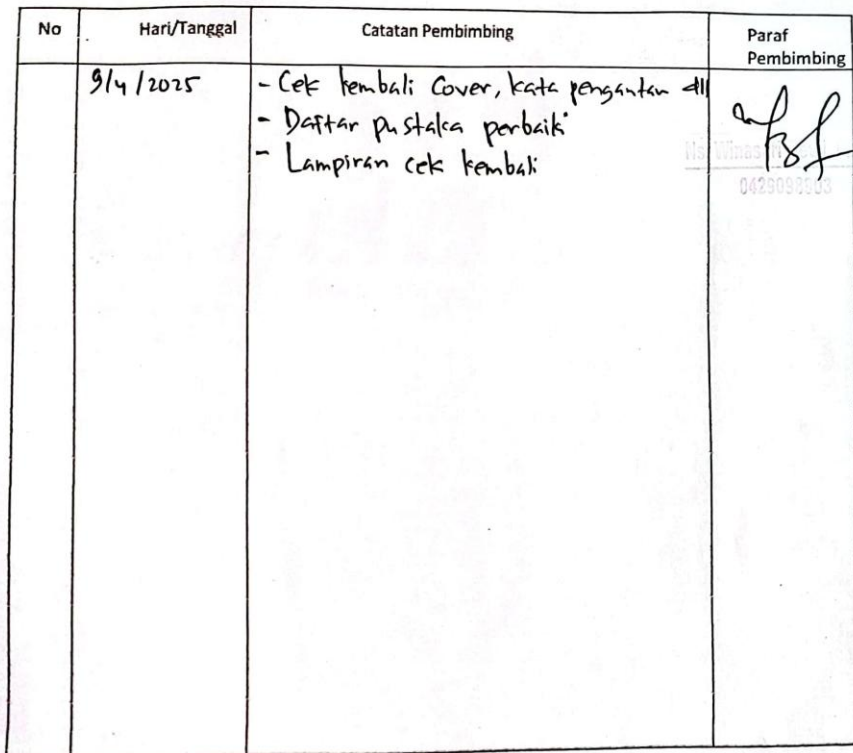 No
Hari/Tanggal
Catatan Pembimbing
Paraf
Pembimbing
9/4/2025
- Cek kembali Cover, kata pengantar dll
- Daftar pustaka perbaiki
- Lampiran cek kembali
Ns.
0429098903